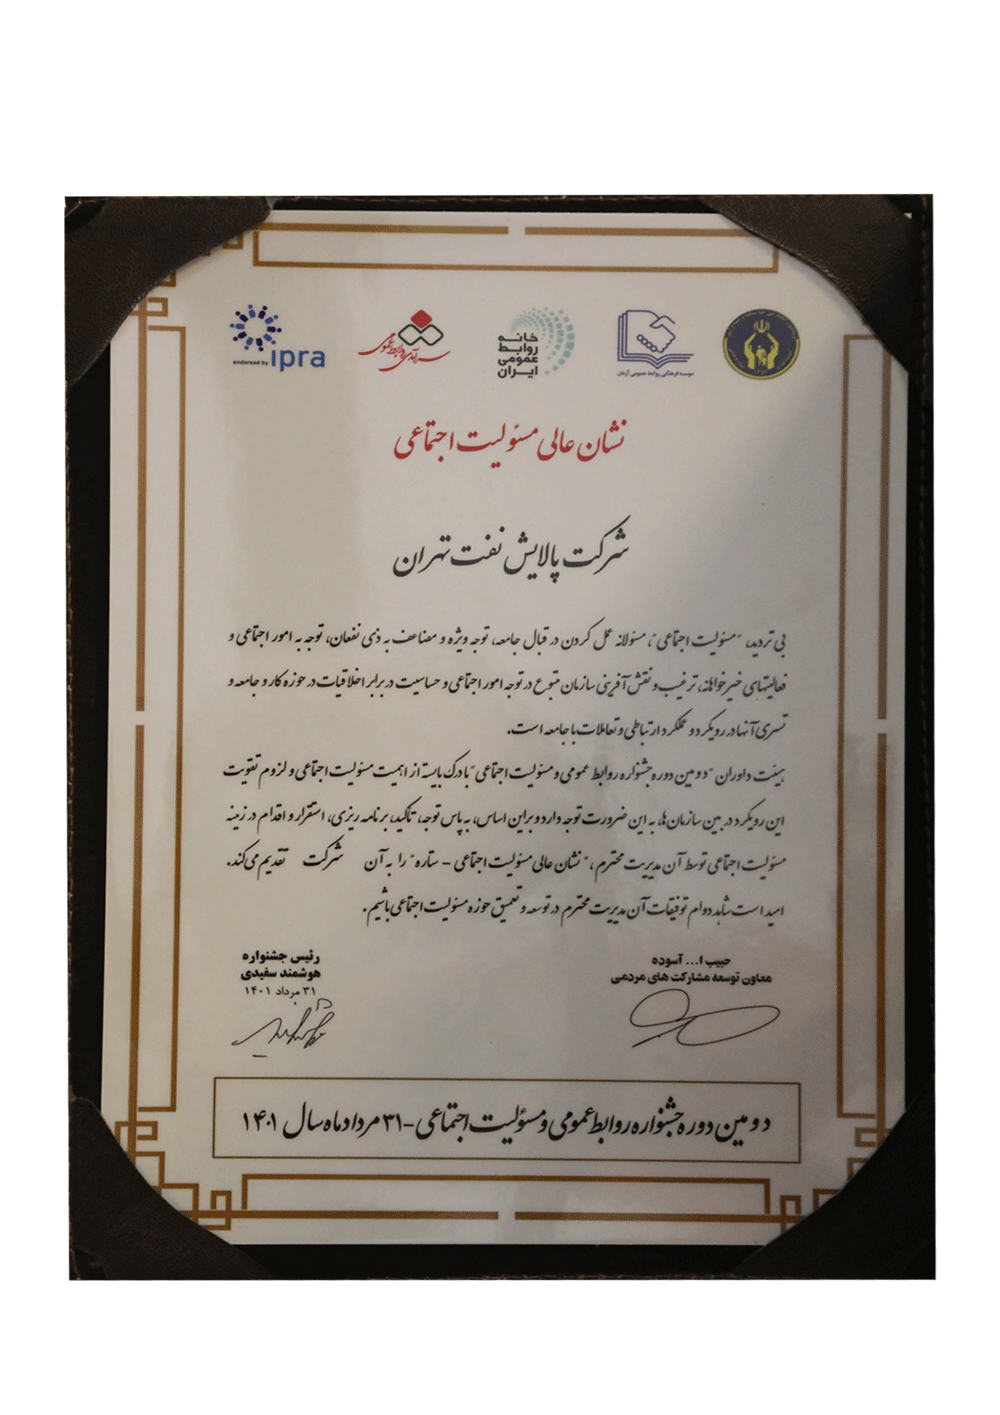 endorsed by ipra
سرآمدی روابط عمومی
خانه
روابط
عمومی
ایران
موسسه فرهنگی روابط عمومی آرمان
نشان عالی مسئولیت اجتماعی
شرکت پالایش نفت تهران
بی تردید، "مسئولیت اجتماعی"، مسئولانه عمل کردن در قبال جامعه، توجه ویژه و مضاعف به ذی نفعان، توجه به امور اجتماعی و
فعالیتهای خیرخواهانه، ترغیب و نقش آفرینی سازمان متبوع در توجه امور اجتماعی و حساسیت در برابر اخلاقیات در حوزه کار و جامعه و
تسری آنها در رویکرد و عملکرد ارتباطی و تعاملات با جامعه است.
هیئت داوران "دومین دوره جشنواره روابط عمومی و مسئولیت اجتماعی" با درک بایسته از اهمیت مسئولیت اجتماعی و لزوم تقویت
این رویکرد در بین سازمان ها، به این ضرورت توجه دارد و براین اساس، به پاس توجه، تاکید، برنامه ریزی، استقرار و اقدام در زمینه
مسئولیت اجتماعی توسط آن مدیریت محترم، "نشان عالی مسئولیت اجتماعی - ستاره" را به آن شرکت تقدیم می کند.
امید است شاهد دوام توفیقات آن مدیریت محترم در توسعه و تعمیق حوزه مسئولیت اجتماعی باشیم.
حبیب ا... آسوده
معاون توسعه مشارکت های مردمی
رئیس جشنواره
هوشمند سفیدی
۳۱ مرداد ۱۴۰۱
دومین دوره جشنواره روابط عمومی و مسئولیت اجتماعی - ۳۱ مرداد ماه سال ۱۴۰۱